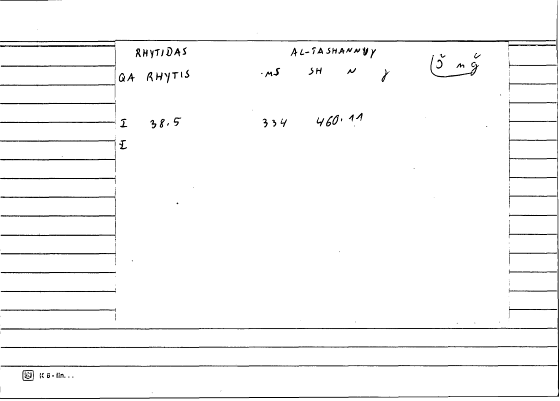 RHYTIDAS AL-TASHANNUJ
QA RHYTIS MS SH N J š n ǧ
I 38.5 334 460.11
I
K 6 - lin...